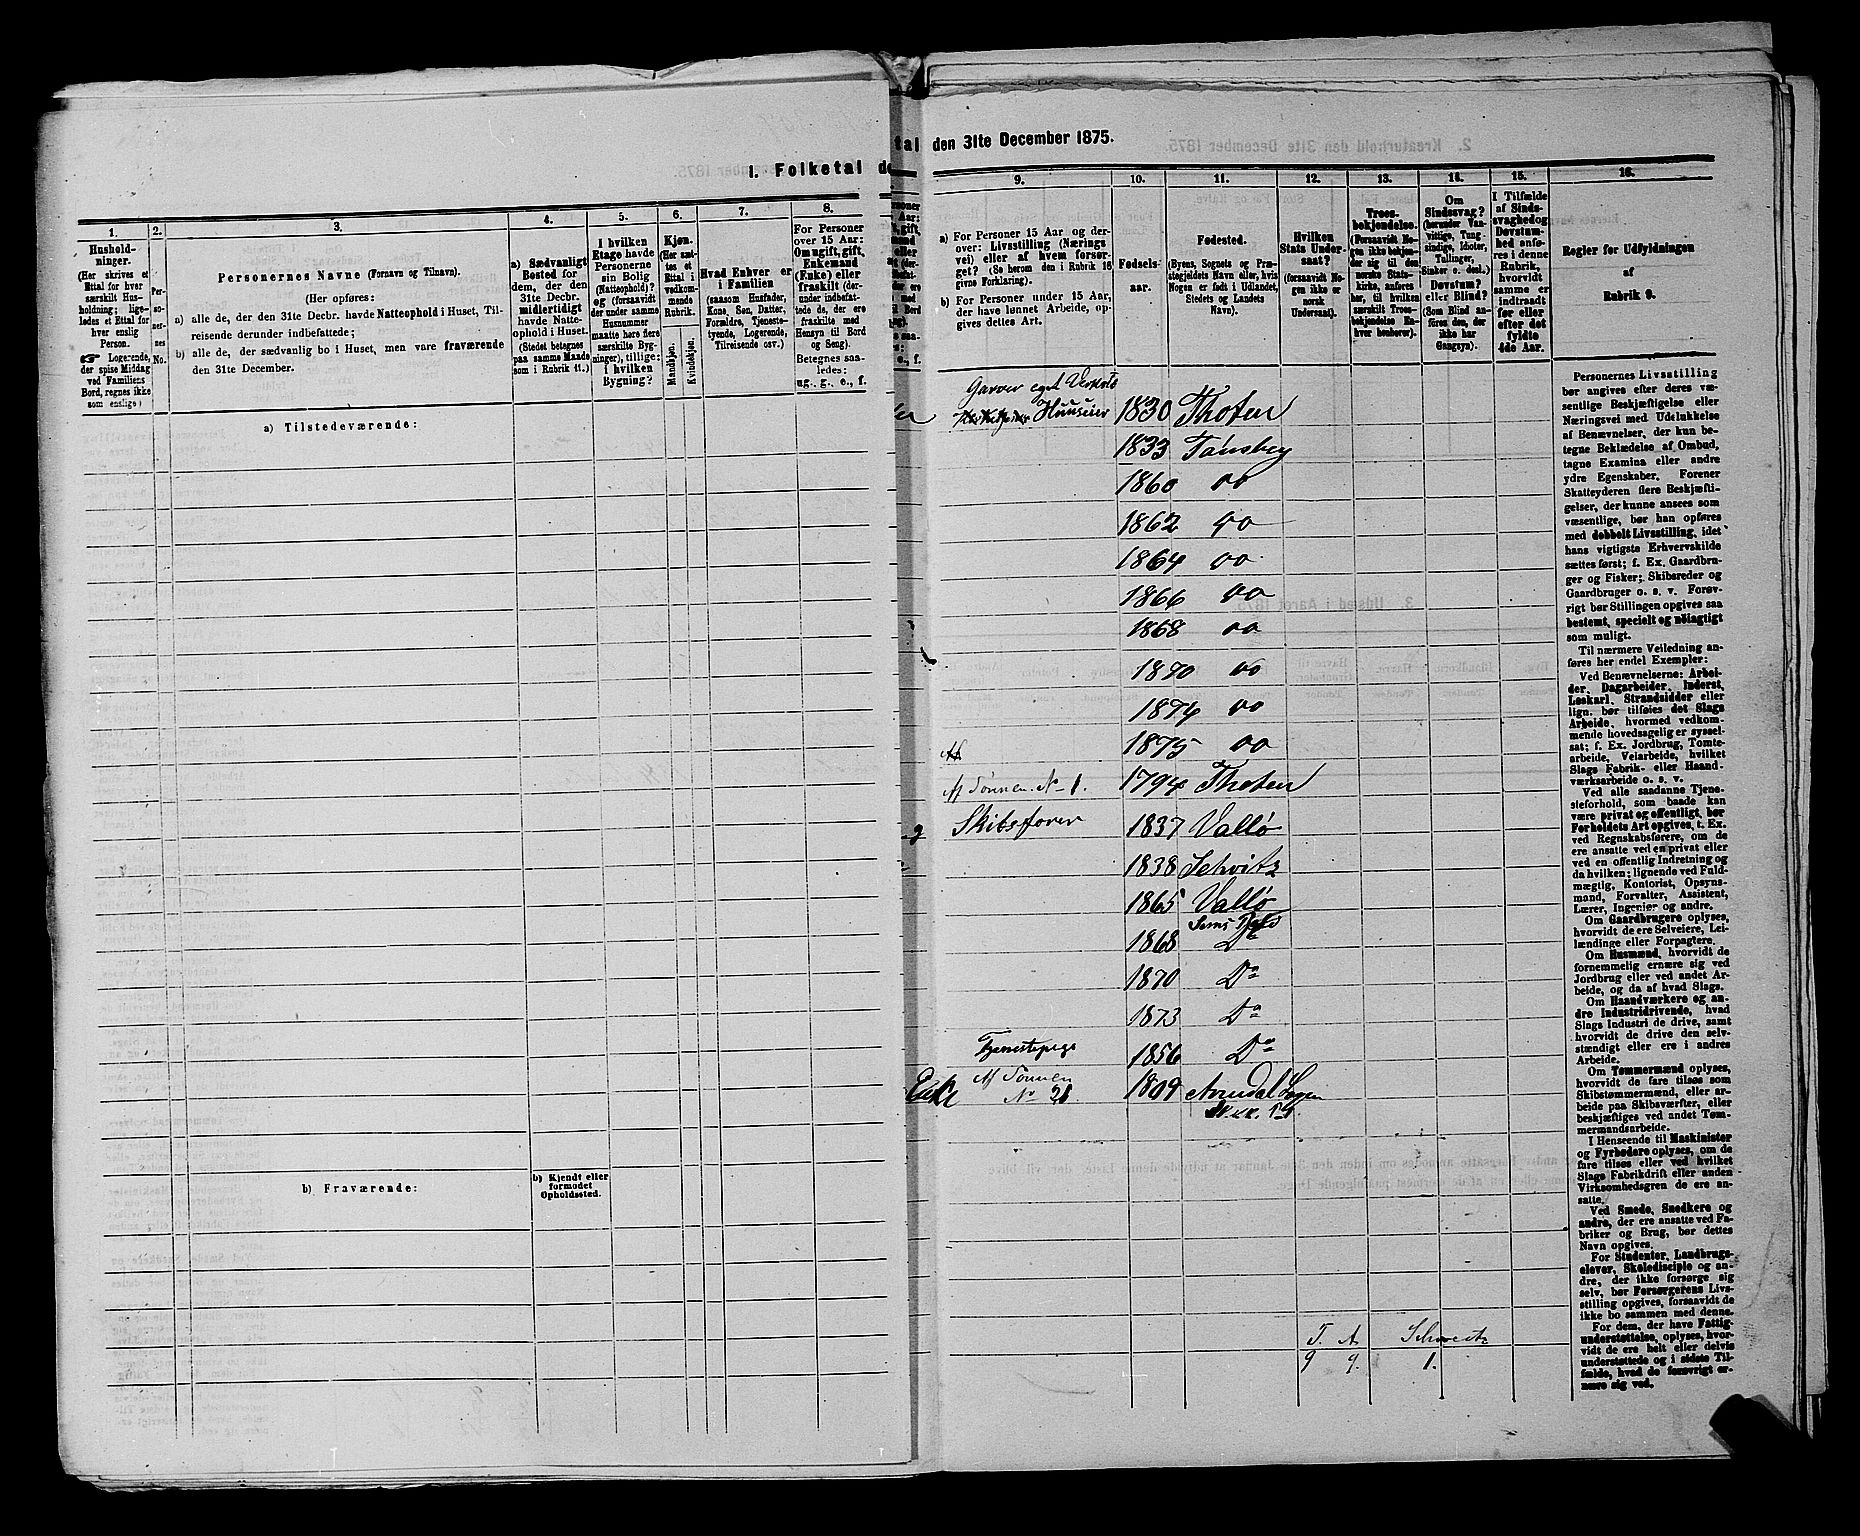 1. Folketal de
1.
2.
3.
4.
5.
6.
7.
8.
Hushold-
ninger.
(Her skrives et
Ettal for hver
særskilt Hus-
holdning; lige-
ledes et Ettal for
hver enslig
Person.
Logerende,
der spise Middag
ved Familiens
Bord, regnes ikke
som enslige)
Per-
so-
ner-
nes
No.
Personernes Navne (Fornavn og Tilnavn).
(Her opføres:
a) alle de, der den 31te Decbr. havde Natteophold i Huset, Til-
reisende derunder indbefattede;
b) alle de, der sædvanlig bo i Huset, men vare fraværende
den 31te December.
a) Sædvanligt
Bosted for
dem, der den
31te Decbr.
midlertidigt
havde Natte-
ophold i Huset.
(Stedet betegnes
paa samme Maade
som i Rubrik 11.)
I hvilken
Etage havde
Personerne
sin Bolig
(Natteophold)?
og (forsaavidt
der under samme
Husnummer
maatte høre flere
særskilte Byg-
ninger), tillige:
i hvilken
Bygning?
Kjøn.
(Her sæt-
tes et
Ettal i
vedkom-
mende
Rubrik.
Mandkjøn.
Kvindekjøn.
Hvad Enhver er
i Familien
(saasom Husfader,
Kone, Søn, Datter,
Forældre, Tjeneste-
tyende, Logerende,
Tilreisende osv.)
For Personer
over 15 Aar:
Om ugift, gift,
Enkemand
(Enke) eller
fraskilt (der-
under indbefat-
tede de, der ere
fraskilte med
Hensyn til Bord
og Seng).
Betegnes saa-
ledes:
ug., g., e., f.
a) Tilstedeværende:
b) Fraværende:
b) Kjendt eller
formodet
Opholdssted.
tal den 31te December 1875.
9.
10.
11.
12.
13.
14.
15.
16.
a) For Personer 15 Aar og der-
over: Livsstilling (Nærings
vei) eller af hvem forsør-
get? (Se herom den i Rubrik 16
givne Forklaring).
b) For Personer under 15 Aar,
der have lønnet Arbeide, op-
gives dettes Art.
Fødsels-
aar.
Fødested.
(Byens, Sognets og Præ-
stegjeldets Navn eller, hvis
Nogen er født i Udlandet,
Stedets og Landets
Navn).
Hvilken
Stats Under-
saat?
(forsaavidt No-
gen ikke er
norsk
Undersaat).
Troes-
bekjendelse.
(Forsaavidt No-
gen ikke bekjen-
der sig til den
norske Stats-
kirke, anføres
her, til hvilken
særskilt Troes-
bekjendelse En-
hver henhører).
Om
Sindssvag?
(herunder Van-
vittige, Tung
sindige, Idioter,
Tullinger,
Sinker o. desl.)
Døvstum?
eller Blind?
(Som Blind an-
føres den, der
ikke har
Gangsyn).
I Tilfælde
af Sinds-
svaghed og
Døvstum-
hed anfø-
res i denne
Rubrik,
hvorvidt
samme er
indtraadt
før eller
efter det
fyldte
4de Aar.
Regler for Udfyldningen
af
Rubrik 9.
Garver eget Verksted
Huuseier 1830 Thoten
1833 Tønsberg
1860 do
1862 do
1864 do
1866 do
1868 do
1870 do
1874 do
1875 do
Af Sønnen No 1. 1794 Thoten
g Skibsfører 1837 Valló
1838 Schvitz
1865 Valló
Sems Pgld
1868 Do
1870 Do
1873 Do
Tjenestepige 1856 Do
Enke Af Sønnen No 21 1809 Arendal
T. A. Schveitz
9 9. 1.
Personernes Livsstilling
bør angives efter deres væ-
sentlige Beskjæftigelse eller
Næringsvei med Udelukkelse
af Benævnelser, der kun be-
tegne Beklædelse af Ombud,
tagne Examina eller andre
ydre Egenskaber. Forener
Skatteyderen flere Beskjæfti-
gelser, der kunne ansees som
væsentlige, bør han opføres
med dobbelt Livsstilling, idet
hans vigtigste Erhvervskilde
sættes først; f. Ex. Gaardbru-
ger og Fisker; Skibsreder og
Gaardbruger o. s. v. Forøv-
rigt bør Stillingen opgives saa
bestemt, specielt og nøiagtigt
som muligt.
Til nærmere Veiledning an-
føres her endel Exempler:
Ved Benævnelserne: Arbei-
der, Dagarbeider, Inderst,
Løskarl, Strandsidder eller
lign. bør tilføies det Slags
Arbeide, hvormed vedkom-
mende hovedsagelig er syssel-
sat; f. Ex. Jordbrug, Tomte-
arbeide, Veiarbeide, hvilket
Slags Fabrik- eller Haand-
værksarbeide o. s. v.
Ved alle saadanne Tjene-
steforhold, som baade kan
være privat og offentligt, bør
Forholdets Art opgives, t. Ex.
ved Regnskabsførere, om de
ere ansatte ved en privat eller
ved en offentlig Indretning og
da hvilken; lignende ved Fuld-
mægtig, Kontorist, Opsyns-
mand, Forvalter, Assistent,
Lærer, Ingeniør og andre.
Om Gaardbrugere oplyses,
hvorvidt de ere Selveiere, Lei-
lændinge eller Forpagtere.
Om Husmænd, hvorvidt de
fornemmelig ernære sig ved
Jordbrug eller ved andet Ar-
beide, og da af hvad Slags.
Om Haandværkere og an-
dre Industridrivende, hvad
Slags Industri de drive, samt
hvorvidt de drive den selv-
stændigt eller ere i andres
Arbeide.
Om Tømmermænd oplyses,
hvorvidt de fare tilsøs som
Skibstømmermænd, eller ar-
beide paa Skibsværfter, eller
beskjæftiges ved andet Tøm-
mermandsarbeide.
I Henseende til Maskinister
og Fyrbødere oplyses, om de
fare tilsøs eller ved hvilket
Slags Fabrikdrift eller anden
Virksomhedsgren de ere an-
satte.
Ved Smede, Snedkere og
andre, der ere ansatte ved Fa-
briker og Brug, bør dettes
Navn opgives.
For Studenter, Landbrugs-
elever, Skoledisciple og an-
dre, der ikke forsørge sig
selv, bør Forsørgerens Livs-
stilling opgives, forsaavidt de
ikke bo sammen med denne.
For dem, der have Fattig-
understøttelse, oplyses, hvor-
vidt de ere helt eller delvis
understøttede og i sidste Til-
fælde, hvad de forøvrigt er-
nære sig ved.